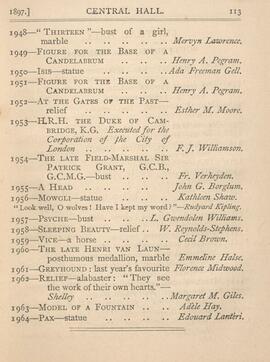 1897.] CENTRAL HALL. 113
1948—“THIRTEEN”—bust of a girl,
marble .. .. .. .. Mervyn Lawrence.
1949—FIGURE FOR THE BASE OF A
CANDELABRUM .. .. Henry A. Pegram.
1950—ISIS—statue .. .. Ada Freeman Gell.
1951—FIGURE FOR THE BASE OF A
CANDELABRUM .. .. Henry A. Pegram.
1952—AT THE GATES OF THE PAST—
relief .. .. .. .. Esther M. Moore.
1953—H.R.H. THE DUKE OF CAM-
BRIDGE, K.G. Executed for the
Corporation of the City of
London .. .. .. .. F. J. Williamson.
1954—THE LATE FIELD-MARSHAL SIR
PATRICK GRANT, G.C.B.,
G.C.M.G.—bust .. .. Fr. Verheyden.
1955—A HEAD .. .. .. John G. Borglum.
1956—MOWGLI—statue .. .. Kathleen Shaw.
“Look well, O wolves! Have I kept my word?”—Rudyard Kipling.
1957—PSYCHE—bust .. .. L. Gwendolen Williams.
1958—SLEEPING BEAUTY—relief .. W. Reynolds-Stephens.
1959—VICE—a horse .. .. .. Cecil Brown.
1960—THE LATE HENRI VAN LAUN—
posthumous medallion, marble Emmeline Halse.
1961—GREYHOUND: last year's favourite Florence Midwood.
1962—RELIEF—alabaster: “They see
the work of their own hearts.”—
Shelley .. .. .. Margaret M. Giles.
1963—MODEL OF A FOUNTAIN .. .. Adèle Hay.
1964—PAX—statue .. .. .. Edouard Lanteri.